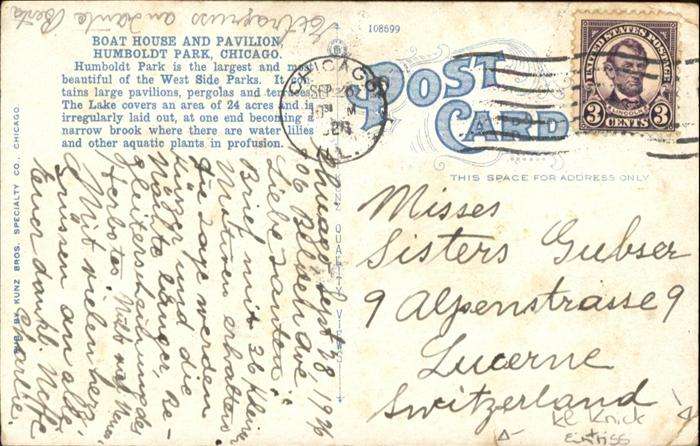 108699
BOAT HOUSE AND PAVILION,
HUMBOLDT PARK, CHICAGO.
Humboldt Park is the largest and most
beautiful of the West Side Parks. It con-
tains large pavilions, pergolas and terraces.
The Lake covers an area of 24 acres and is
irregularly laid out, at one end becoming a
narrow brook where there are water lilies
and other aquatic plants in profusion.
POST
CARD
CHICAGO
SEP 28
UNITED STATES POSTAGE
LINCOLN
3 CENTS 3
THIS SPACE FOR ADDRESS ONLY
PUB. BY KUNZ BROS. SPECIALTY CO., CHICAGO.
Chicago Sept 28, 1926
706 Belden Ave
Liebe Tanten
Brief mit 36 kleinen
erhalten
die Tage werden
kürzer und die
Nächte länger,
Mit
Mit vielen herz.
Grüssen an alle
Euer dankb. Neffe
Charlie.
Misses
Sisters Gubser
9 Alpenstrasse 9
Lucerne
Switzerland
kl Knick